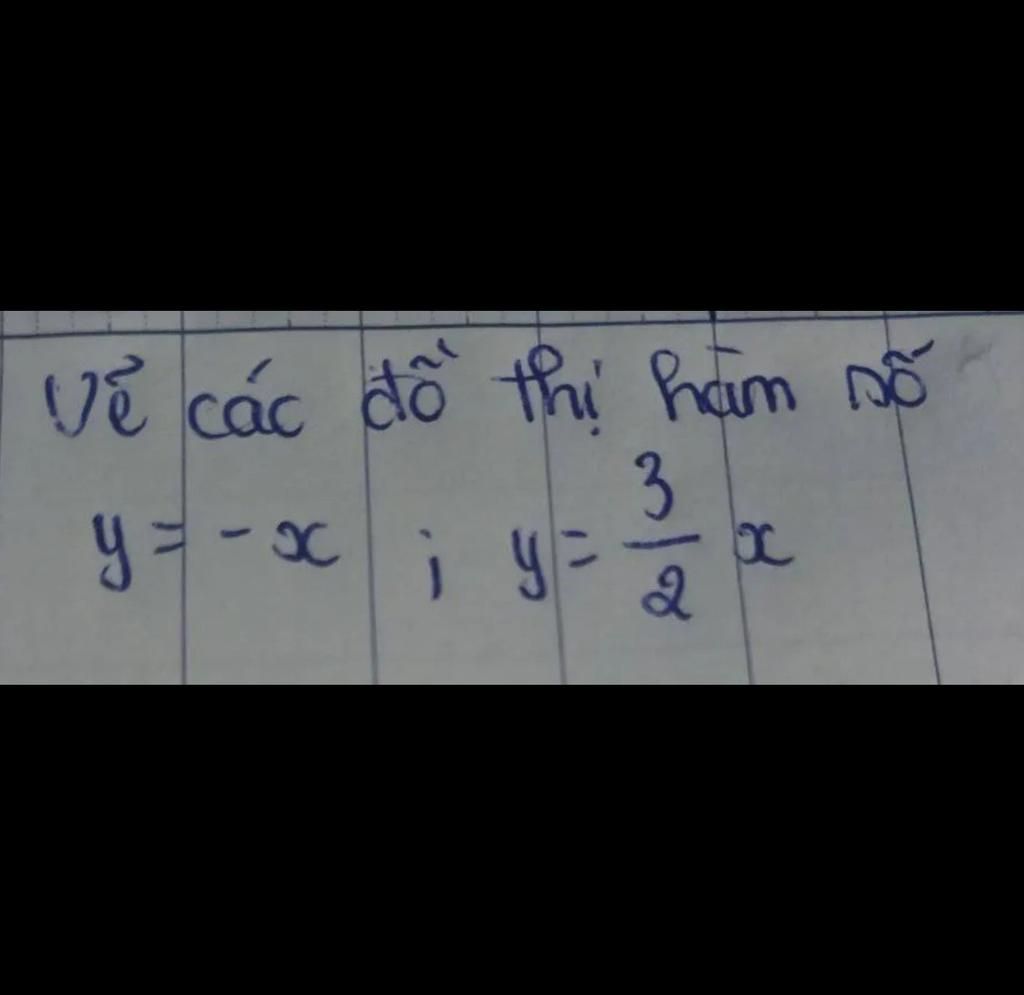 Vẽ các đồ thị hàm số
y = - x ; y = 3/2 x